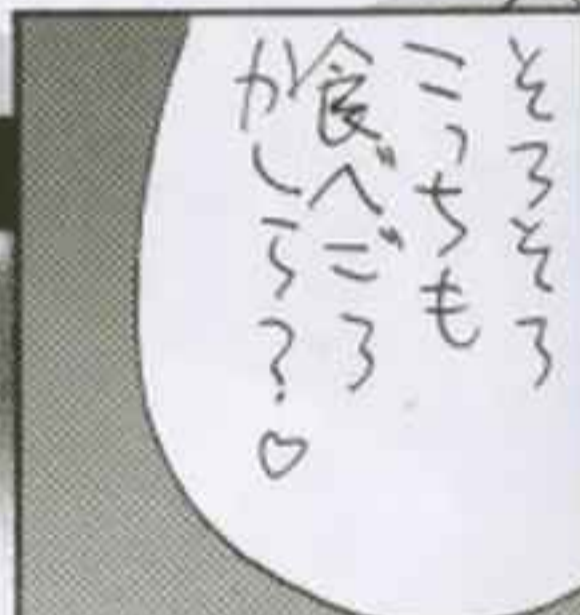 そろそろ
こっちも
食べごろ
かしら？♡